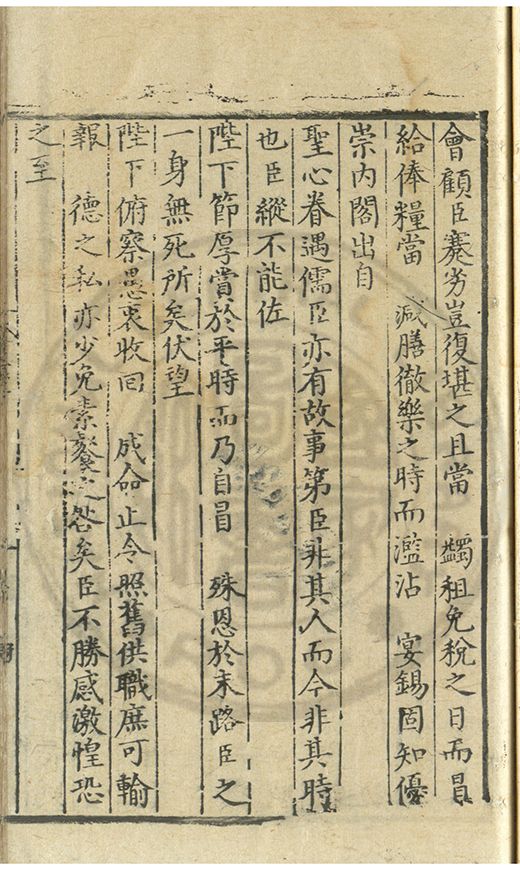 會顧臣蹇劣豈復堪之且當　蠲租免稅之日而冒
給俸糧當　減膳徹樂之時而濫沾　宴錫固知優
崇内閣出自
聖心眷遇儒臣亦有故事第臣非其人而今非其時
也臣縱不能佐
陛下節厚賞於平時而乃自冒　殊恩於末路臣之
一身無死所矣伏望
陛下俯察愚衷收回　成命止令照舊供職庶可輸
報　德之私亦少免素餐之咎矣臣不勝感激惶恐
之至